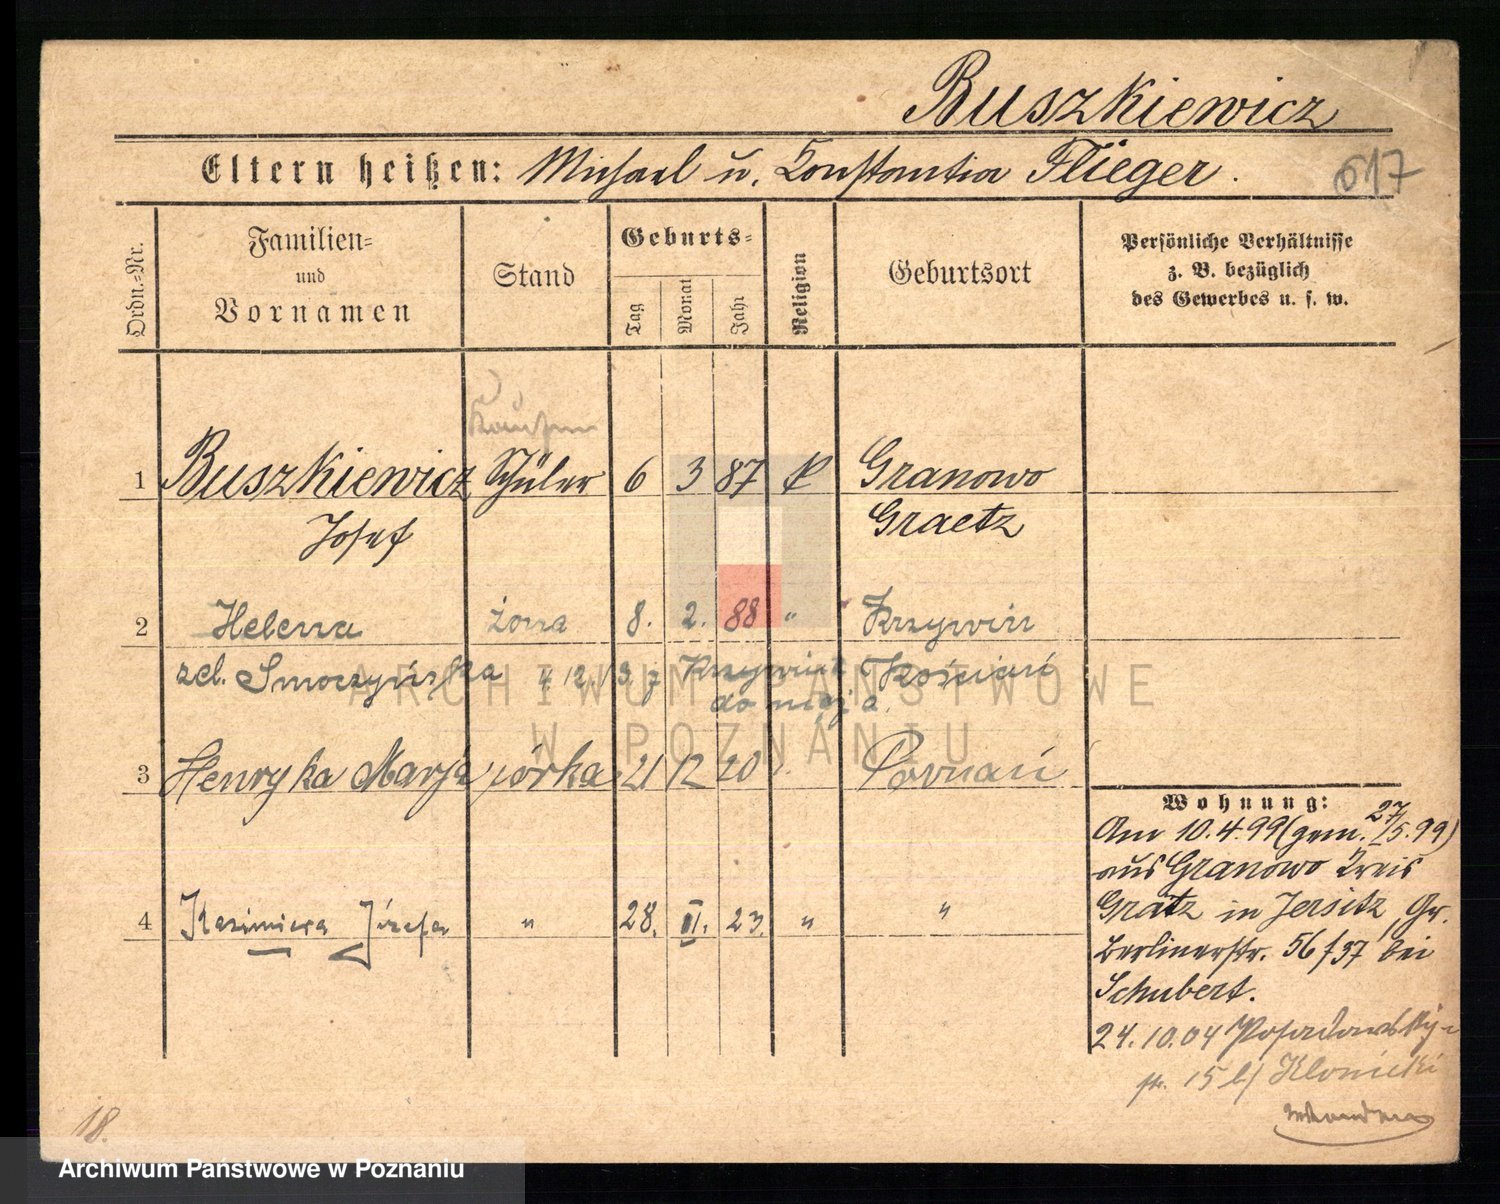 Buszkiewicz
Eltern heißen: Michael u. Constantia Flieger.
617
Ordn.-Nr.
Familien-
und
Vornamen
Stand
Geburts-
Tag
Monat
Jahr
Religion
Geburtsort
Persönliche Verhältnisse
z. B. bezüglich
des Gewerbes u. s. w.
Kaufm
1 Buszkiewicz Schüler 6 3 87 K Granowo
Josef Graetz
2 Helena żona 8. 2. 88 " Krzywiń
zel. Smoczyńska 4.12.13. z Krzywinia Kościan
do męża
3 Henryka Marja córka 21 12 20 Poznań
4 Kazimiera Józefa " 28. II. 23. " "
Wohnung:
Am 10.4.99 (gem. 27/5.99)
aus Granowo Kreis
Grätz in Jersitz, Gr.
Berlinerstr. 56/37 bei
Schubert.
24.10.04 Posadowsky-
str. 15 b/ Klonicki
18.
ARCHIWUM PAŃSTWOWE
W POZNANIU
Archiwum Państwowe w Poznaniu